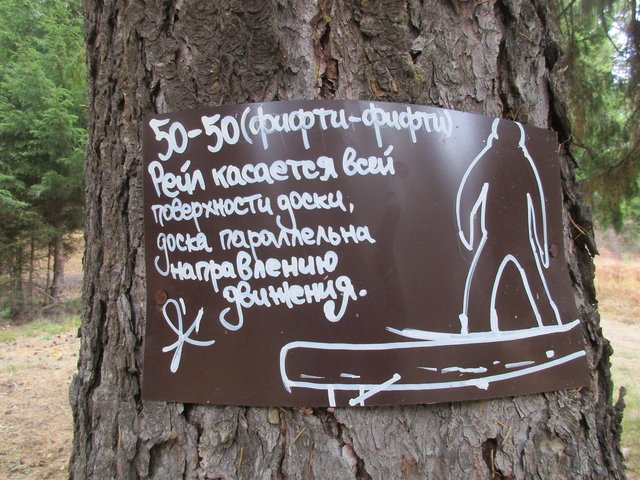 50-50 (фифти-фифти)
Рейл касается всей
поверхности доски,
доска параллельна
направлению
движения.